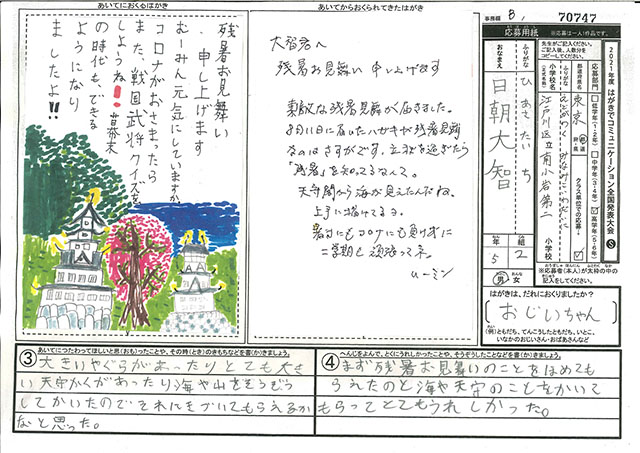 あいてにおくるはがき
残暑お見舞い
申し上げます
むーみん元気にしていますか。
コロナがおさまったら
また、戦国武将クイズを
しようね!!
の時代も、できる
ようになり
ましたよ!!
あいてからおくられてきたはがき
大智君へ
残暑お見舞い申し上げます
素敵な残暑見舞が届きました。
8月11日に届いたハガキが残暑見舞
なのはさすがです。立秋を過ぎたら
「残暑」を知ってるなんて。
天守閣から海が見えたんだね。
上手に描けてるヨ。
暑さにもコロナにも負けずに
二学期も頑張って来。
むーミン
事務欄 B,
70747
応募用紙
※応募は一人1作品です。
先生がご記入ください。
ご記入後、人数分を
コピーしてください。
2021年度 はがきでコミュニケーション全国発表大会 S
応募部門
低学年(1・2年)
中学年(3・4年)
高学年(5・6年)
都道府県名
東京
都
クラス単位での応募
ふりがな
小学校名
(正式名称)
江戸川区立南小岩第二
小学校
※応募者(本人)が太枠の中の
記入をしてください。
ふりがな
ひあさ たいち
おなまえ
日朝大智
5年
2組
男・女
はがきは、だれにおくりましたか?
おじいちゃん
(例)ともだち、てんこうしたともだち、いとこ、
いなかのおじいさん・おばあさんなど
③ あいてにつたわってほしいと思(おも)ったことや、その時(とき)のきもちなどを書(か)きましょう。
大きいやぐらがあったりとても大き
い天守かくがあったり海や山をそうぞう
してかいたのでそれにきづいてもらえるか
なと思った。
④ へんじをよんで、とくにうれしかったことや、そうぞうしたことなどを書(か)きましょう。
まず残暑お見舞いのことをほめても
らえたのと海や天守のことをかいて
もらってとてもうれしかった。